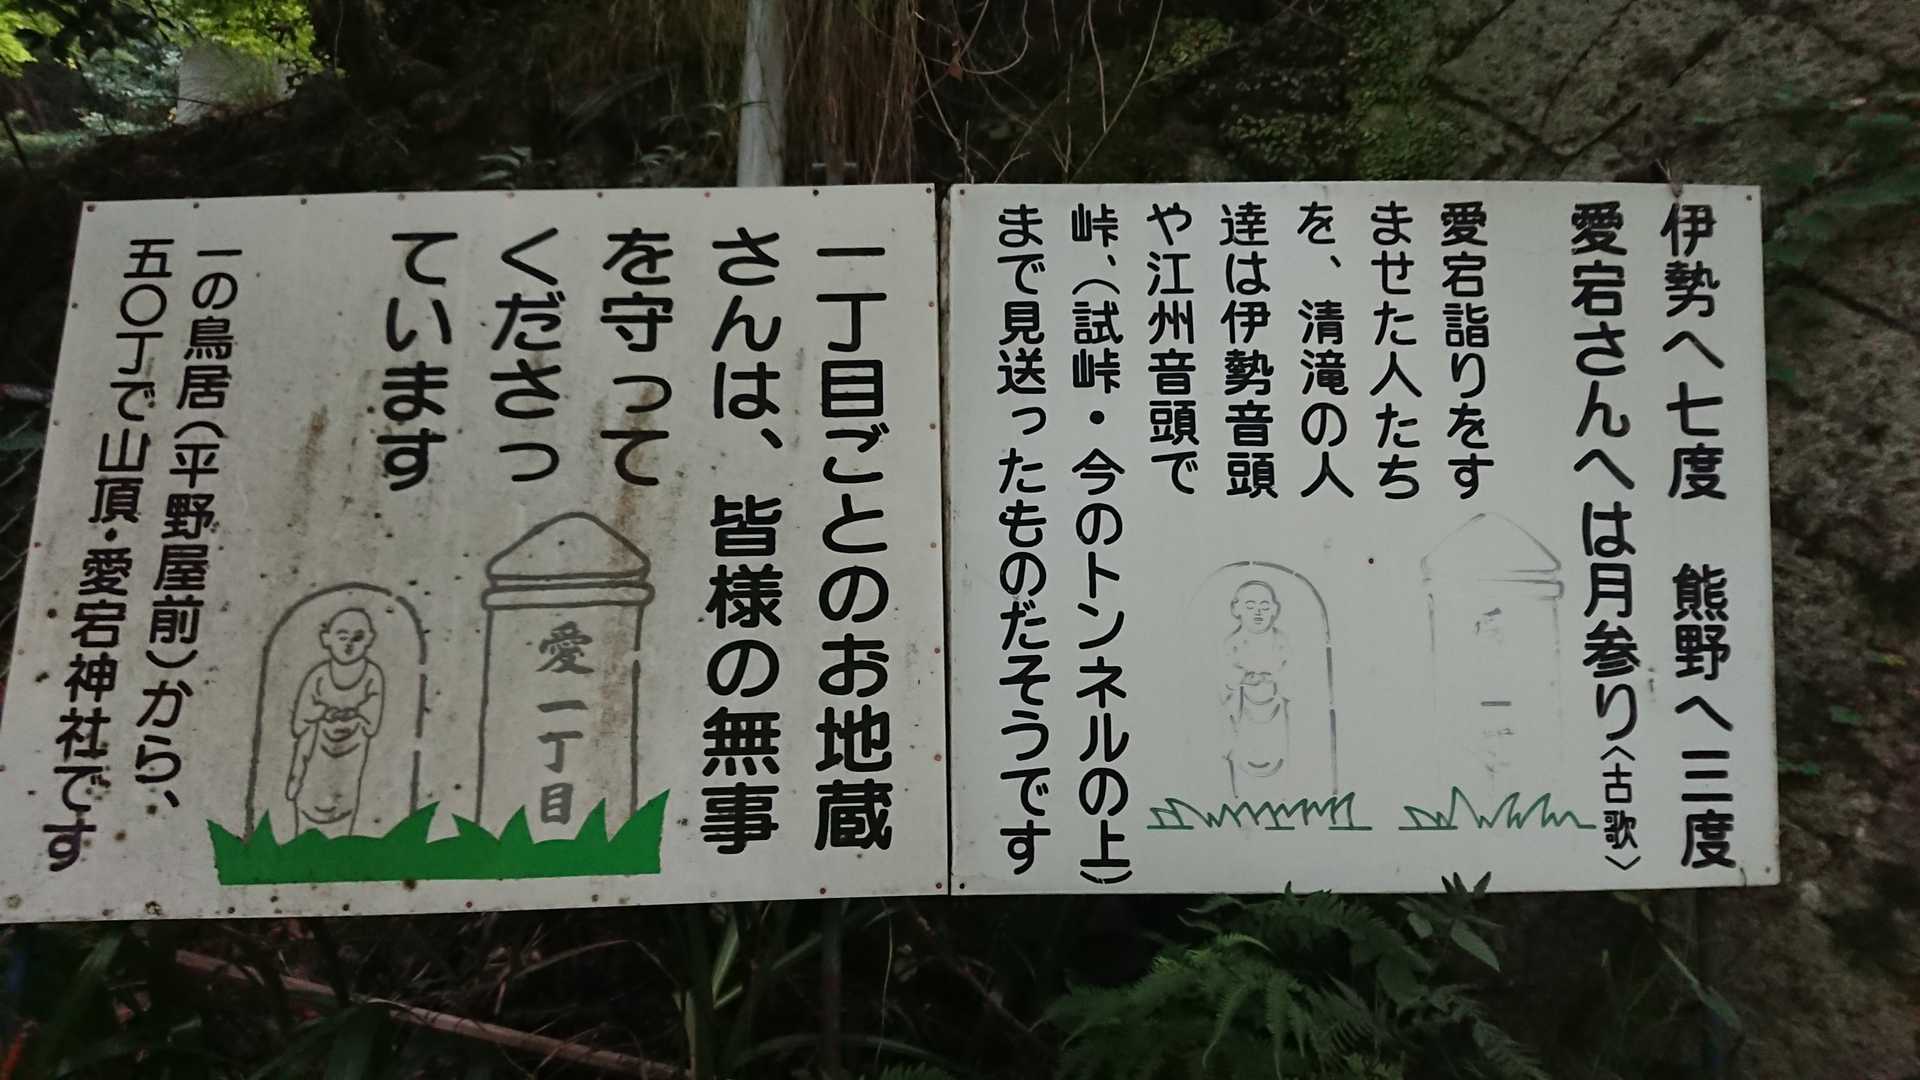 伊勢へ七度　熊野へ三度
愛宕さんへは月参り〈古歌〉
愛宕詣りをす
ませた人たち
を、清滝の人
達は伊勢音頭
や江州音頭で
峠、（試峠・今のトンネルの上）
まで見送ったものだそうです
一丁目ごとのお地蔵
さんは、皆様の無事
を守って
くださっ
ています
愛一丁目
一の鳥居（平野屋前）から、
五〇丁で山頂・愛宕神社です